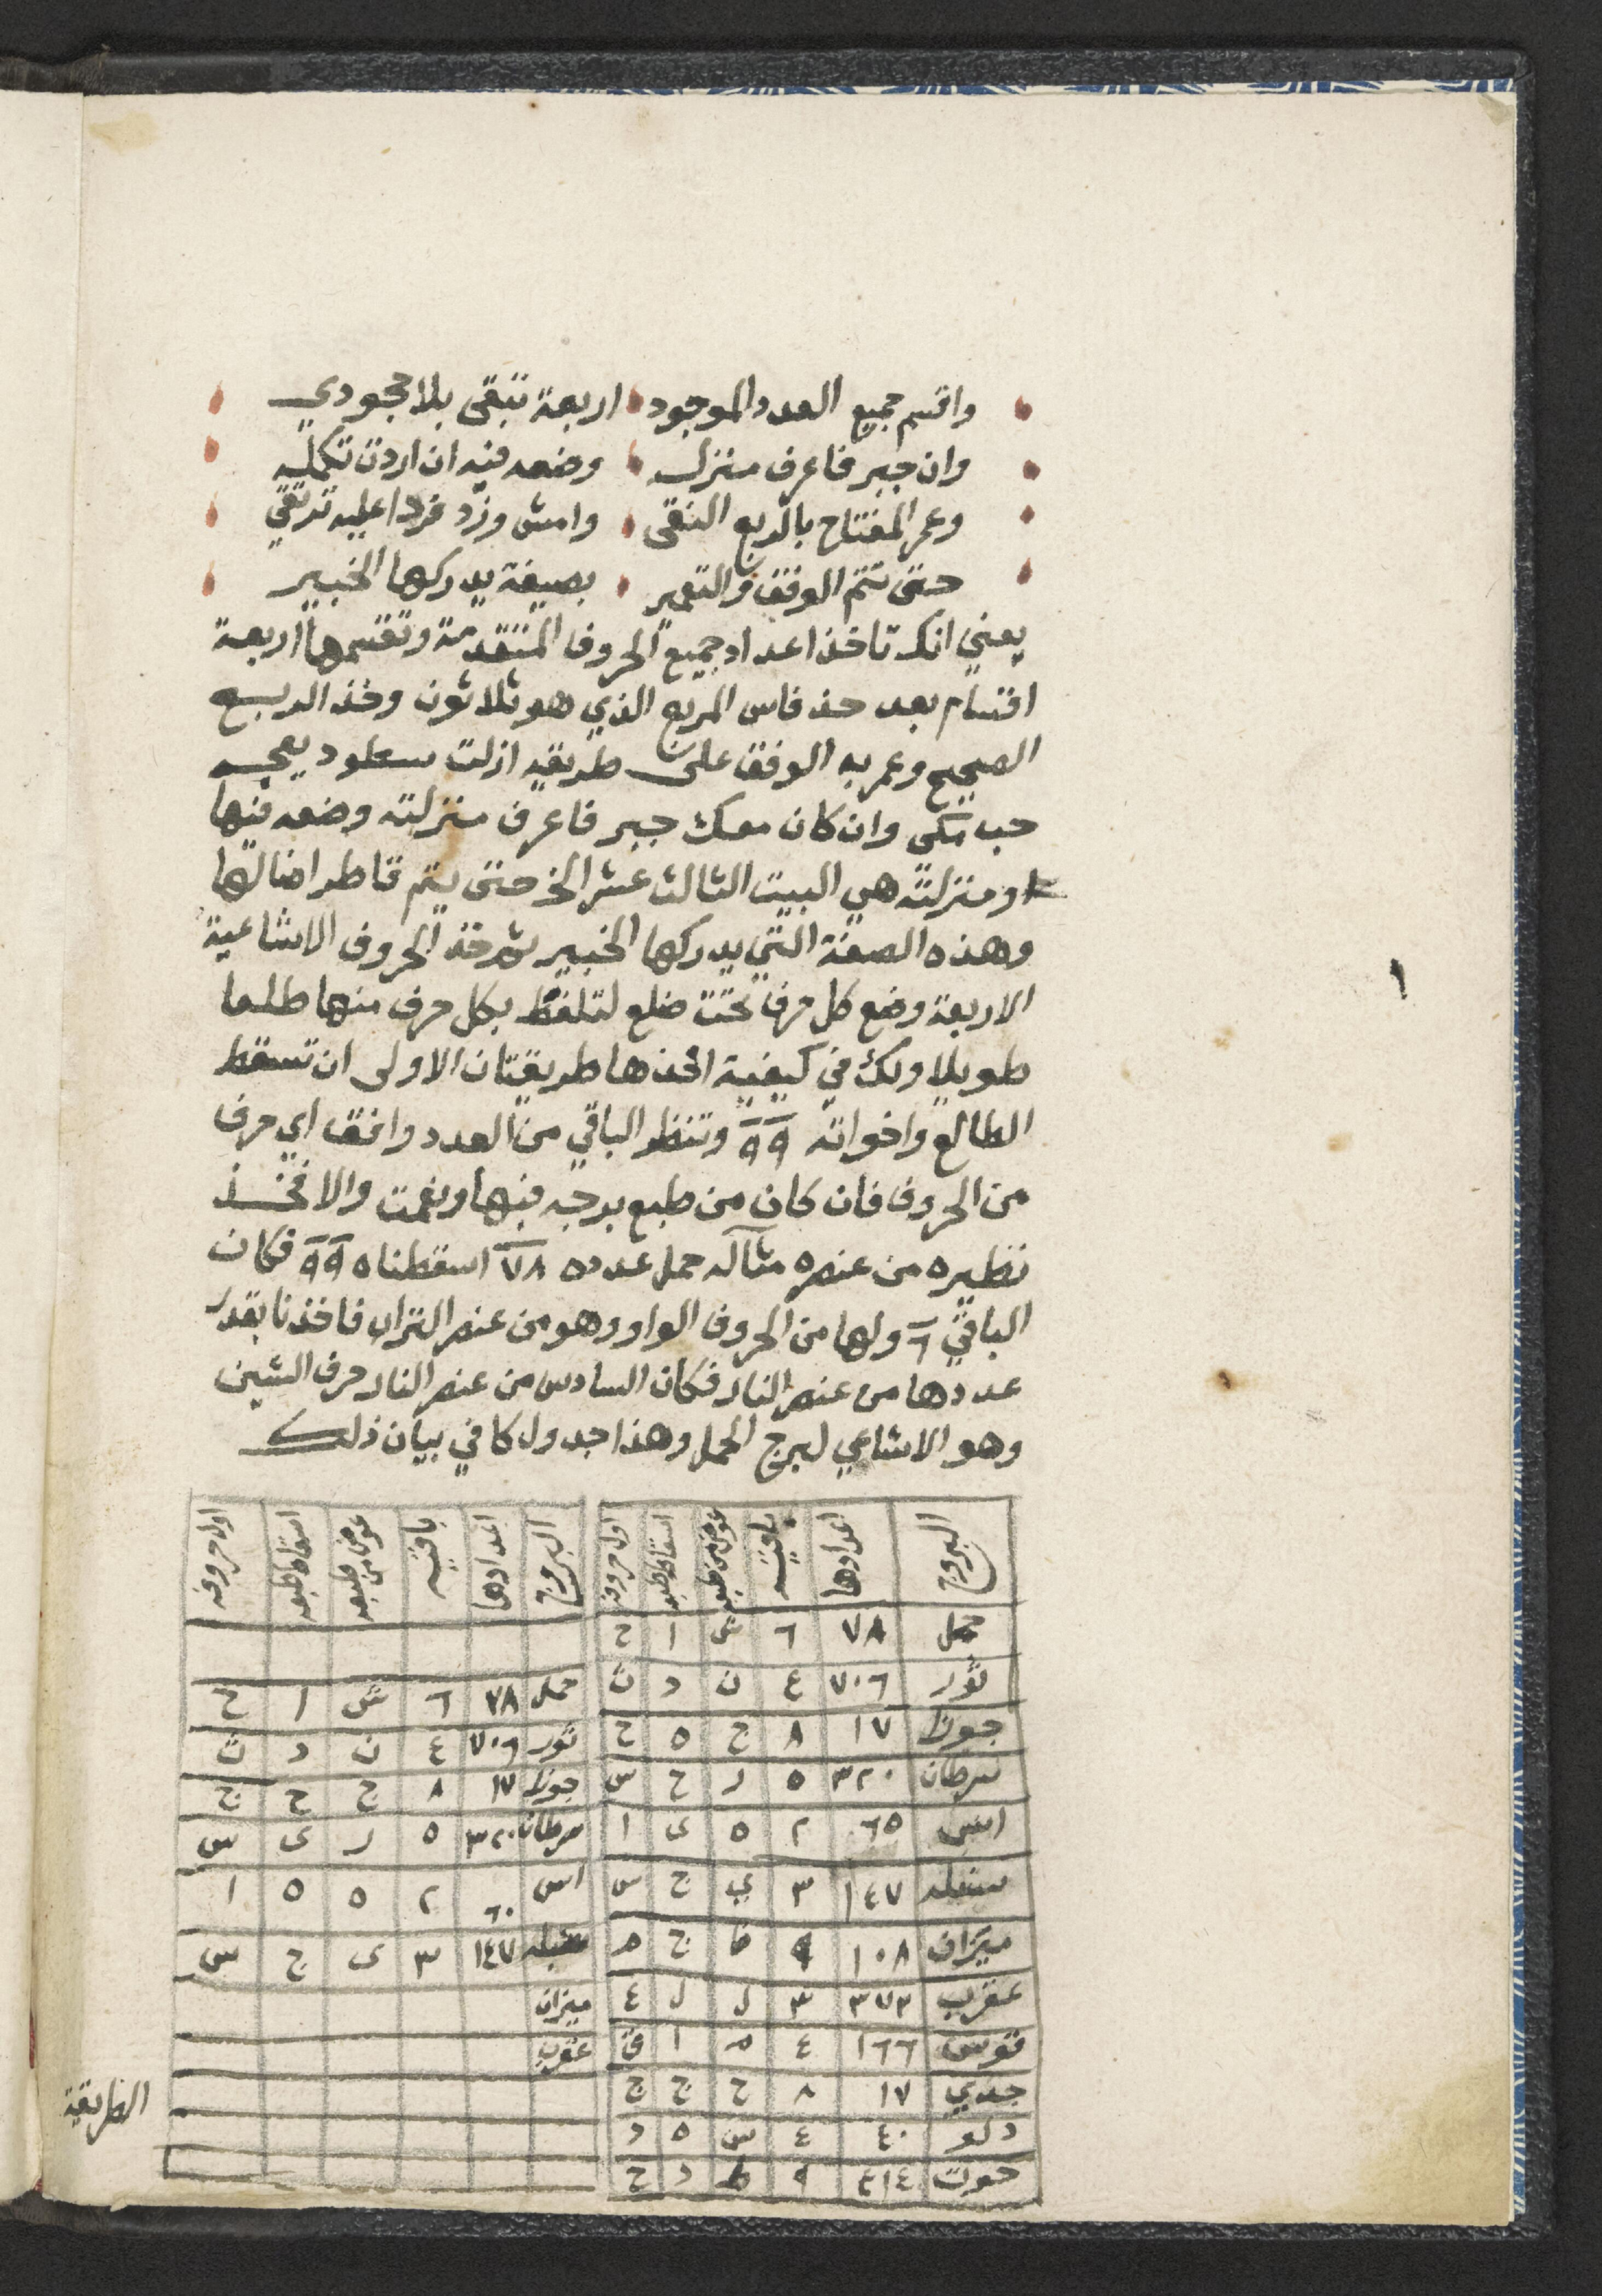 واقسم جميع العدد الموجود اربعة تبقى بلا مجودي
وان جبر فاعرف منزله وضعه فيه ان اردت تكمله
وعمر المفتاح بالربع النقى وامش وزد فردا عليه ترتقي
حتى تتم الوفق والتعمير بصيغة يدركها الخبير
يعني انك تاخذ اعداد جميع الحروف المتقدمة وتقسمها اربعة
اقسام بعد حذف اس المربع الذي هو ثلاثون وخذ الربع
الصحيح وعمر به الوفق على طريقه ازلت سعلود يعجب
حب مكى وان كان معك جبر فاعرف منزلته وضعه فيها
ومنزلته هي البيت الثالث عشر الخ حتى يتم
وهذه الصفة التي يدركها الخبير ثم خذ الحروف الاشاعية
الاربعة وضع كل حرف تحت ضلع لتلفظ بكل حرف منها طلعا
طويلا ولك في كيفية اخذها طريقتان الاولى ان تسقط
الطالع واخواته ٩٩ وتنظر الباقي من العدد وافق اي حرف
من الحروف فان كان من طبع برجه فبها ونعمت والا فخذ
نظيره من عنصره مثاله حمل عدده ٧٨ اسقطناه ٩٩ فكان
الباقي ٦ ولها من الحروف الواو وهو من عنصر التراب فاخذنا بقدر
عددها من عنصر النار فكان السادس من عنصر النار حرف الشين
وهو الاشاعي لبرج الحمل وهذا جدول كافي بيان ذلك
البروج اعدادها باقيه عوض من طبعه اسقاط طبعه اول حروفه
حمل ٧٨ ٦ ش ا ح
ثور ٧٠٦ ٤ ن د ث
جوزا ١٧ ٨ ح ه ج
سرطان ٣٢٠ ٥ ر ح س
اسد ٦٥ ٢ ه ى ا
سنبله ١٤٧ ٣ ي ج س
ميزان ١٠٨ ٩ ظ ج م
عقرب ٣٧٢ ٣ ل ل ع
قوس ١٦٦ ٤ م ا ق
جدي ١٧ ٨ ح ج ج
دلو ٤٠ ٤ س ه د
حوت ٤١٤ ٩ ط د ح
البروج اعدادها باقيه عوض من طبعه اسقاط طبعه اول حروفه
حمل ٧٨ ٦ ش ا ح
ثور ٧٠٦ ٤ ن د ث
جوزا ١٧ ٨ ج ح ج
سرطان ٣٢٠ ٥ ر ى س
اسد ٦٠ ٢ ه ه ا
سنبله ١٤٧ ٣ ى ج س
ميزان
عقرب
الطريقة
١